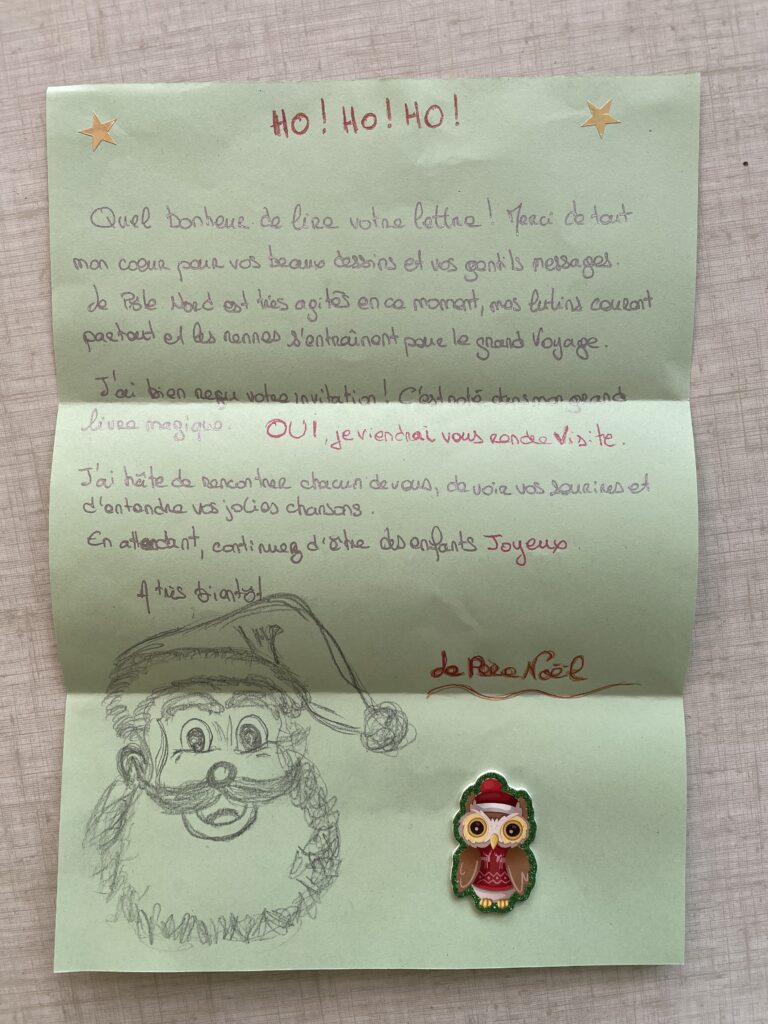 HO! HO! HO!
Quel bonheur de lire votre lettre! Merci de tout
mon coeur pour vos beaux dessins et vos gentils messages.
Le Pôle Nord est très agités en ce moment, mes lutins courent
partout et les rennes s'entraînent pour le grand Voyage.
J'ai bien reçu votre invitation! C'est noté dans mon grand
livre magique. OUI, je viendrai vous rendre Visite.
J'ai hâte de rencontrer chacun de vous, de voir vos sourires et
d'entendre vos jolies chansons.
En attendant, continuez d'être des enfants Joyeux.
A très bientôt
Le Père Noël